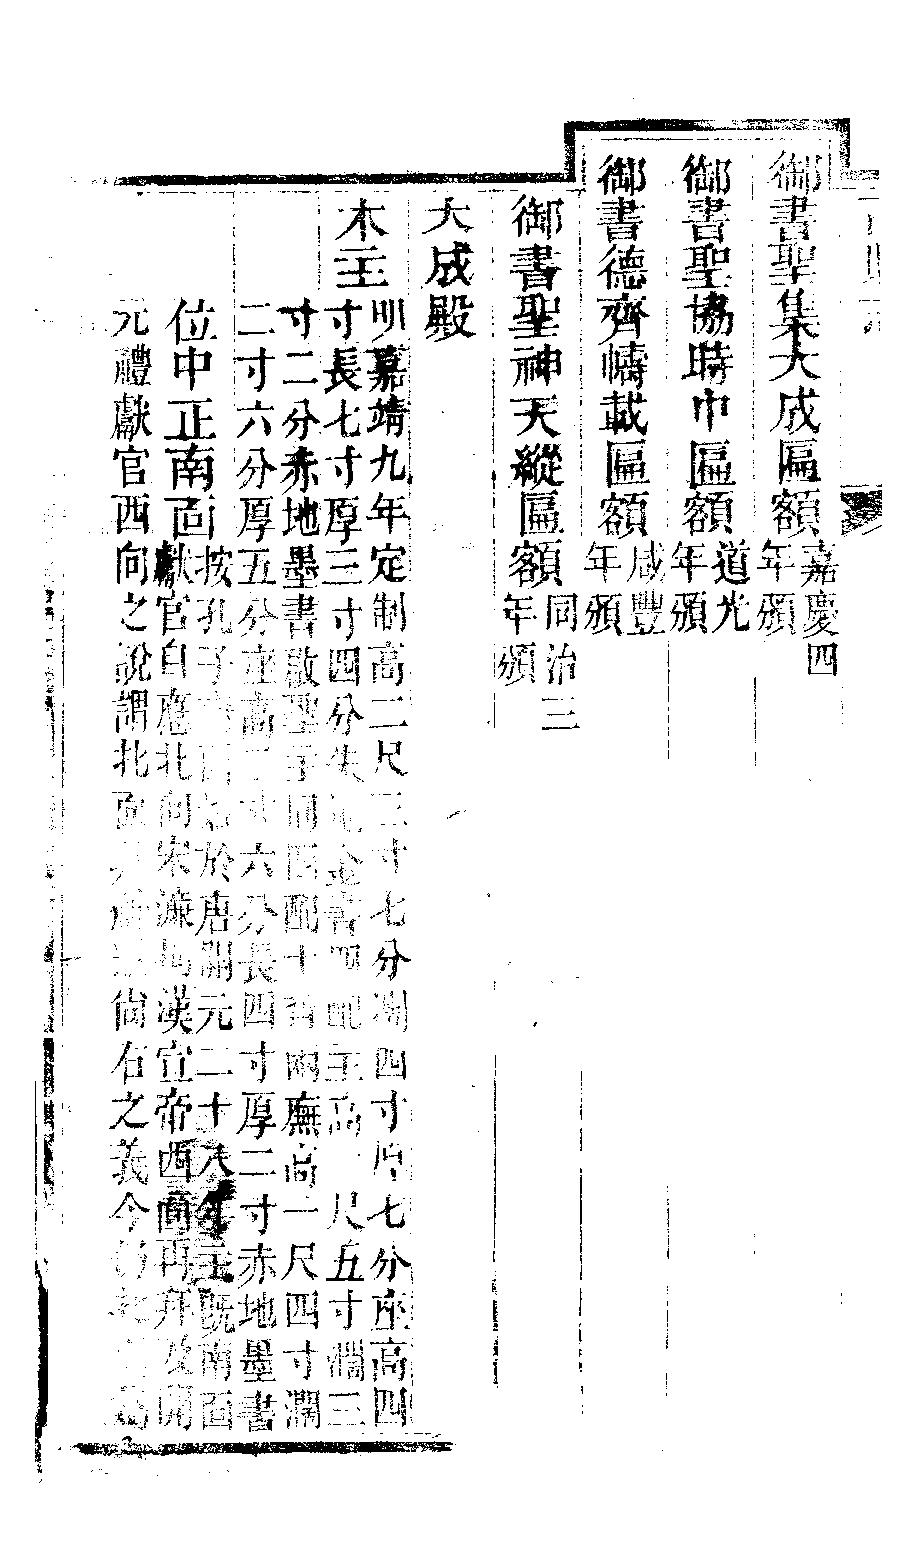 御書聖集大成匾額嘉慶四年頒
御書聖協時中匾額道光年頒
御書德齊幬載匾額咸豐年頒
御書聖神天縱匾額同治三年頒
大成殿
木主明嘉靖九年定制高二尺三寸七分濶四寸厚七分座高四
寸長七寸厚三寸四分朱地金書四配主高一尺五寸濶三
寸二分赤地墨書啟聖主同四配十哲兩廡高一尺四寸濶
二寸六分厚五分座高二寸六分長四寸厚二寸赤地墨書
位中正南面按孔子 於唐開元二十八年主既南面
獻官自應北向宋濂 漢宣帝西面再拜及開
元禮獻官西向之說謂北面 尚右之義今